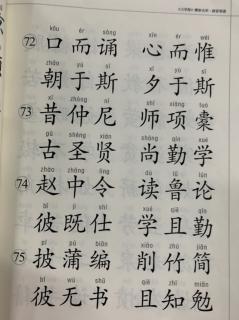 kǒu ér sòng xīn ér wéi
72 口而诵 心而惟
zhāo yú sī xī yú sī
朝于斯 夕于斯
xī zhòng ní shī xiàng tuó
73 昔仲尼 师项橐
gǔ shèng xián shàng qín xué
古圣贤 尚勤学
zhào zhōng lìng dú lǔ lún
74 赵中令 读鲁论
bǐ jì shì xué qiě qín
彼既仕 学且勤
pī pú biān xiāo zhú jiǎn
75 披蒲编 削竹简
bǐ wú shū qiě zhī miǎn
彼无书 且知勉